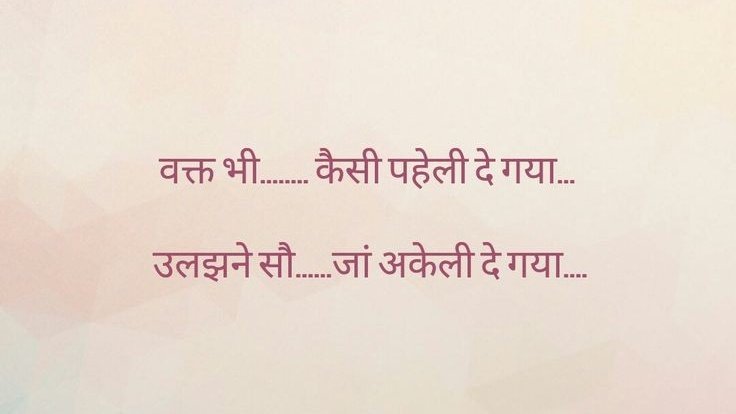 वक्त भी........ कैसी पहेली दे गया...
उलझने सौ......जां अकेली दे गया....